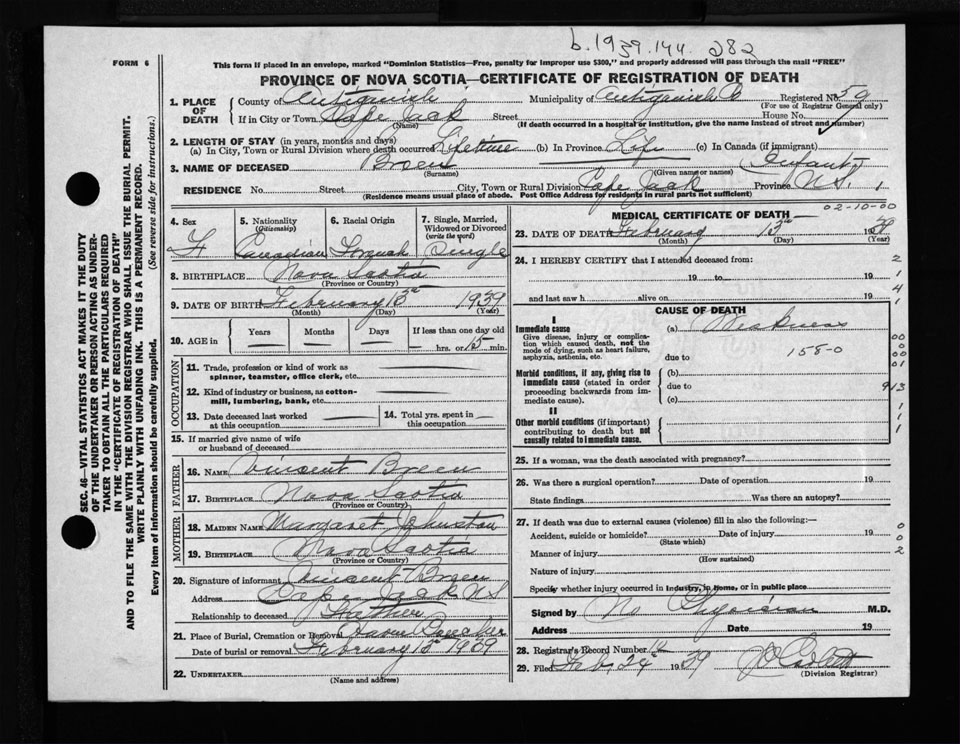 b. 1939. 144. 282
FORM 6
This form if placed in an envelope, marked "Dominion Statistics—Free, penalty for improper use $300," and properly addressed will pass through the mail "FREE"
PROVINCE OF NOVA SCOTIA—CERTIFICATE OF REGISTRATION OF DEATH
SEC. 46—VITAL STATISTICS ACT MAKES IT THE DUTY
OF THE UNDERTAKER OR PERSON ACTING AS UNDER-
TAKER TO OBTAIN ALL THE PARTICULARS REQUIRED
IN THE "CERTIFICATE OF REGISTRATION OF DEATH"
AND TO FILE THE SAME WITH THE DIVISION REGISTRAR WHO SHALL ISSUE THE BURIAL PERMIT.
WRITE PLAINLY WITH UNFADING INK. THIS IS A PERMANENT RECORD.
Every item of information should be carefully supplied. (See reverse side for instructions.)
1. PLACE OF DEATH County of Antigonish Municipality of Antigonish Co Registered No. 59
(For use of Registrar General only)
If in City or Town Cape Jack Street House No.
(Name) (If death occurred in a hospital or institution, give the name instead of street and number)
2. LENGTH OF STAY (in years, months and days)
(a) In City, Town or Rural Division where death occurred Lifetime (b) In Province Life (c) In Canada (if immigrant)
3. NAME OF DECEASED Breen (Infant)
(Surname) (Given name or names)
RESIDENCE No. Street City, Town or Rural Division Cape Jack Province N.S. 1
(Residence means usual place of abode. Post Office Address for residents in rural parts not sufficient)
4. Sex F
5. Nationality (Citizenship) Canadian
6. Racial Origin French
7. Single, Married, Widowed or Divorced (write the word) Single
8. BIRTHPLACE Nova Scotia
(Province or Country)
9. DATE OF BIRTH February 13th 1939
(Month) (Day) (Year)
10. AGE in Years Months Days If less than one day old
hrs. or 15 min.
OCCUPATION
11. Trade, profession or kind of work as
spinner, teamster, office clerk, etc.
12. Kind of industry or business, as cotton-
mill, lumbering, bank, etc.
13. Date deceased last worked
at this occupation
14. Total yrs. spent in
this occupation
15. If married give name of wife
or husband of deceased
FATHER
16. NAME Vincent Breen
17. BIRTHPLACE Nova Scotia
(Province or Country)
MOTHER
18. MAIDEN NAME Margaret Johnston
19. BIRTHPLACE Nova Scotia
(Province or Country)
20. Signature of informant Vincent Breen
Address Cape Jack N S
Relationship to deceased Father
21. Place of Burial, Cremation or Removal Havre Boucher
Date of burial or removal February 13th 1939
22. UNDERTAKER
(Name and address)
MEDICAL CERTIFICATE OF DEATH
02-10-00
23. DATE OF DEATH February 13th 1939
(Month) (Day) (Year)
24. I HEREBY CERTIFY that I attended deceased from:
19 to 19
and last saw h alive on 19
2
1
4
1
CAUSE OF DEATH
I
Immediate cause (a) Weakness
Give disease, injury or complica-
tion which caused death, not the
mode of dying, such as heart failure,
asphyxia, asthenia, etc.
due to 158-0
Morbid conditions, if any, giving rise to
immediate cause (stated in order
proceeding backwards from im-
mediate cause).
(b)
due to
(c)
II
Other morbid conditions (if important)
contributing to death but not
causally related to immediate cause.
25. If a woman, was the death associated with pregnancy?
26. Was there a surgical operation? Date of operation 19
State findings Was there an autopsy?
27. If death was due to external causes (violence) fill in also the following:—
Accident, suicide or homicide? Date of injury 19
(State which)
Manner of injury
(How sustained)
Nature of injury
Specify whether injury occurred in industry, in home, or in public place
0
0
2
Signed by No Physician M.D.
Address Date 19
28. Registrar's Record Number
29. Filed Feb. 24th 1939
(Division Registrar)